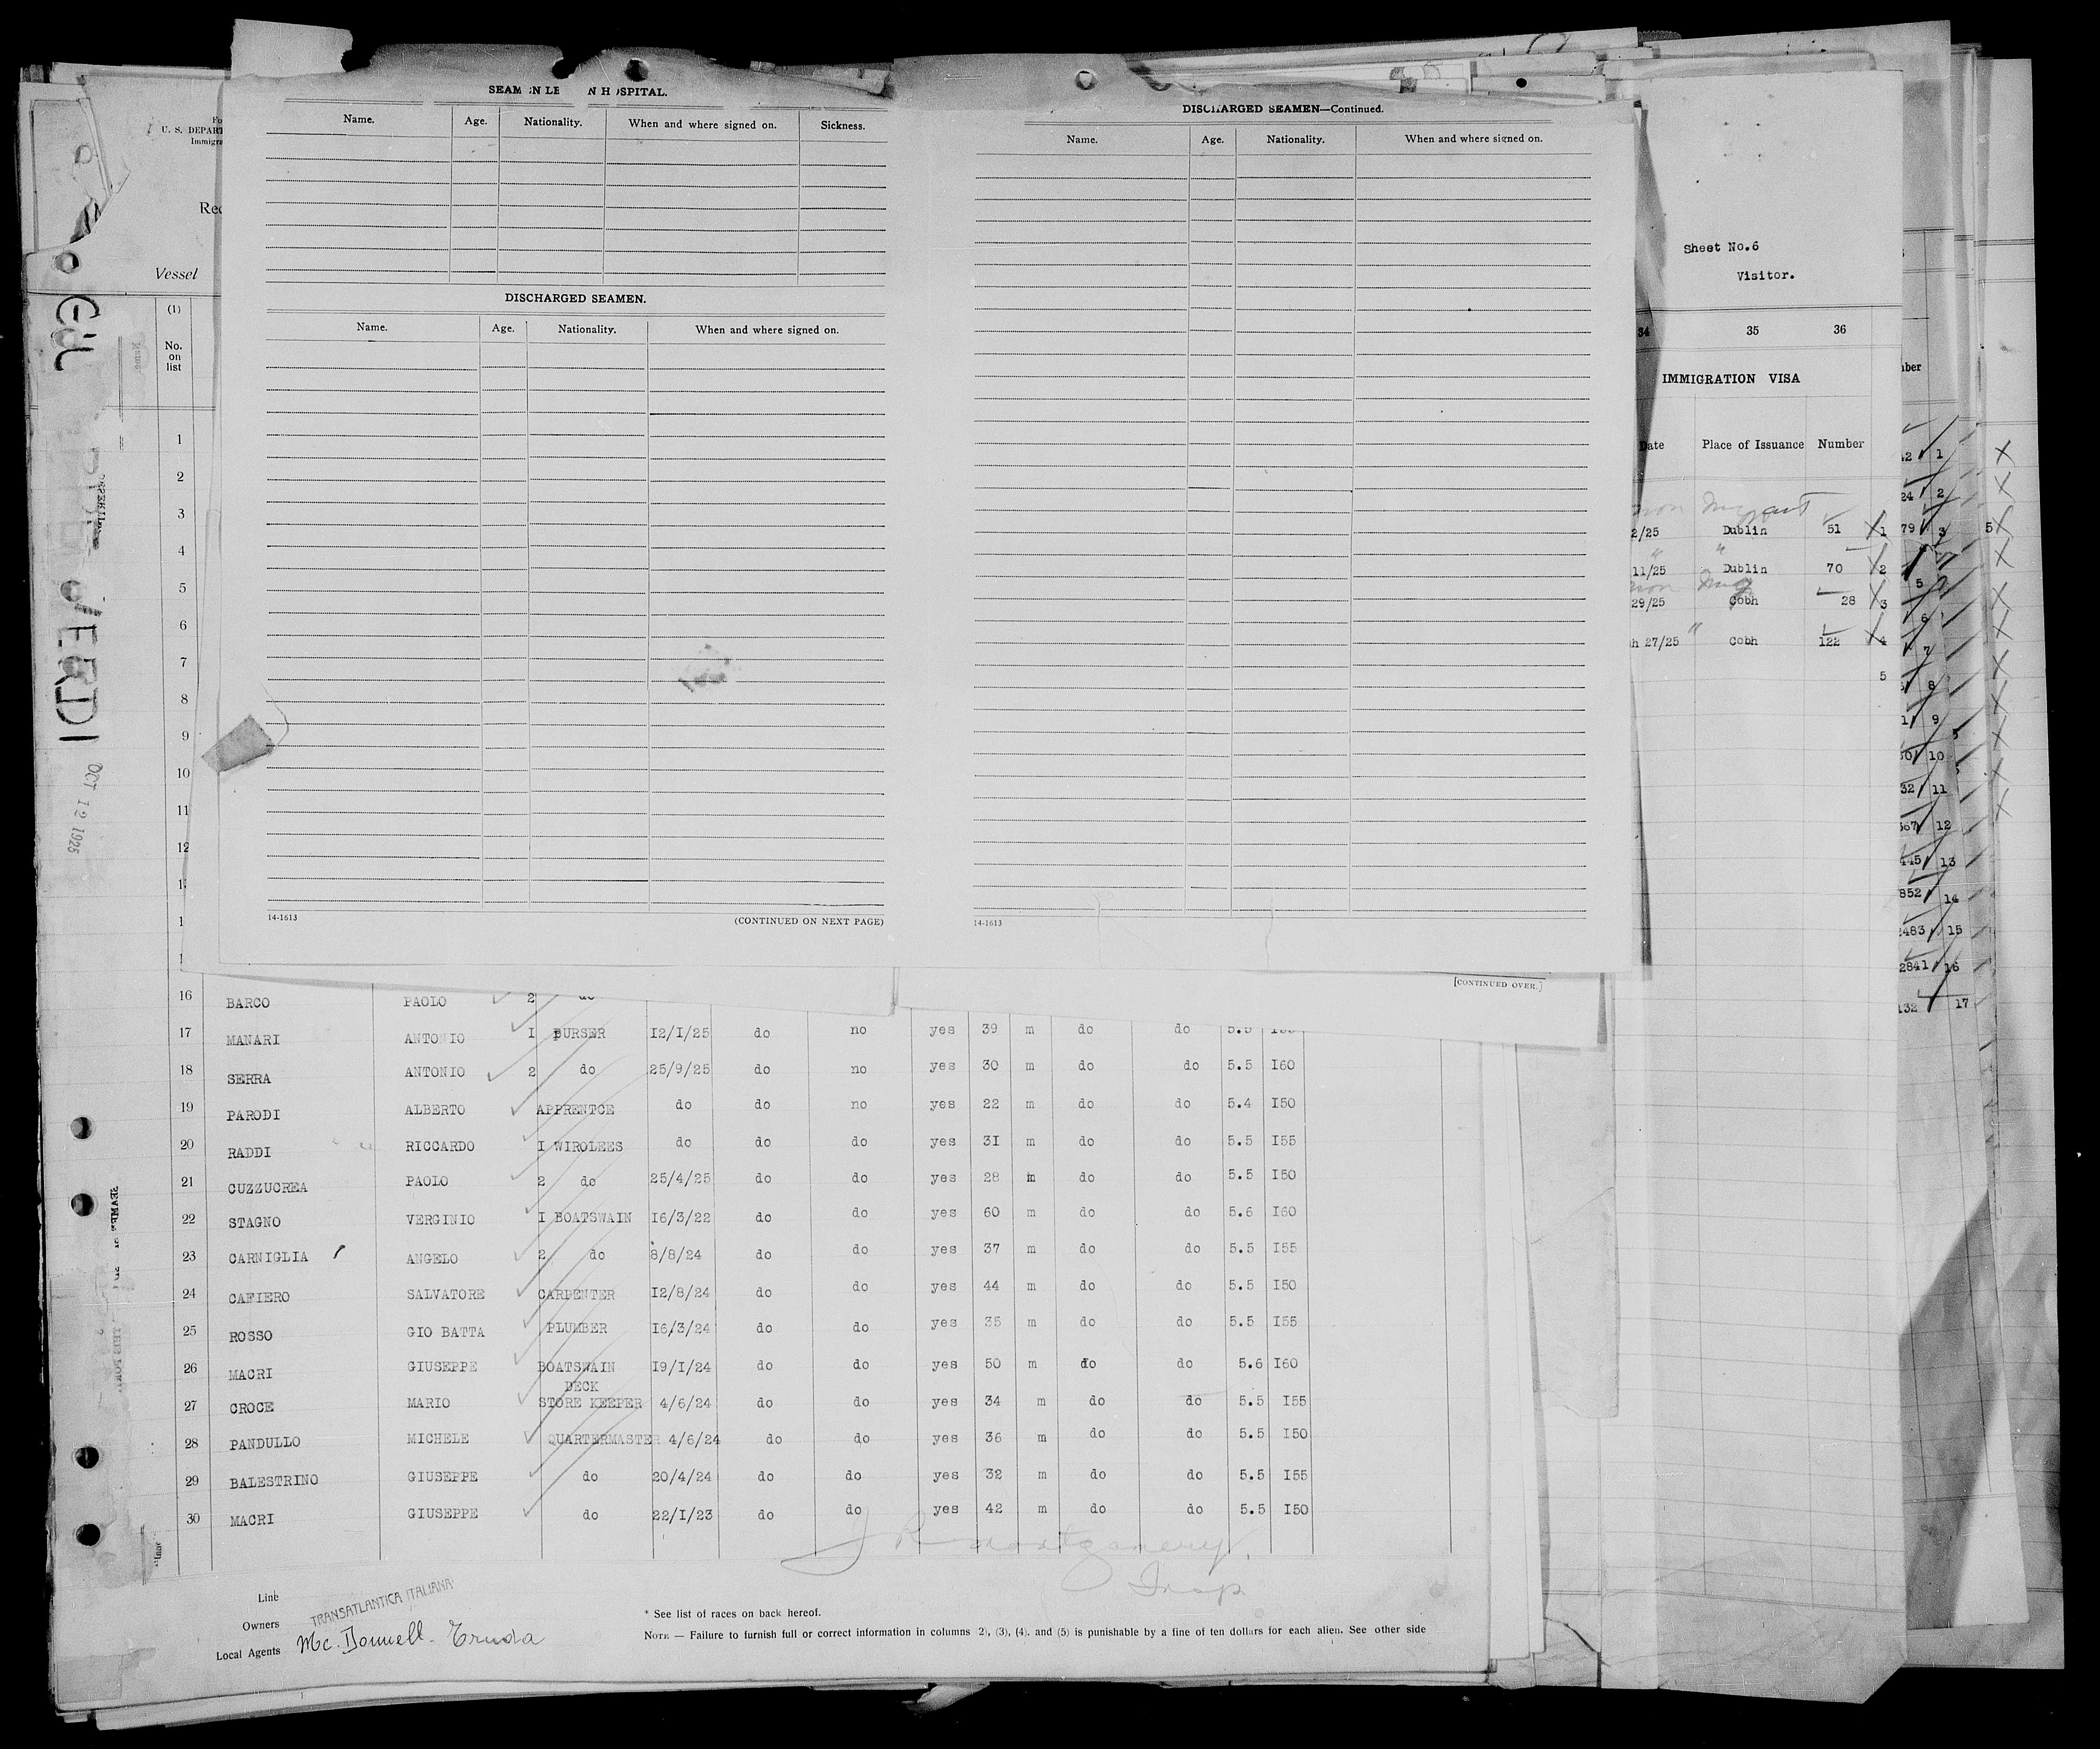 SEAMEN LE N HOSPITAL.
Name. Age. Nationality. When and where signed on. Sickness.
DISCHARGED SEAMEN.
Name. Age. Nationality. When and where signed on.
14-1613 (CONTINUED ON NEXT PAGE)
DISCHARGED SEAMEN—Continued.
Name. Age. Nationality. When and where signed on.
14-1613
[CONTINUED OVER.]
U. S. DEPART
Immigra
Rec
Vessel
(1)
No.
on
list
1
2
3
4
5
6
7
8
9
10
11
12
16 BARCO PAOLO 2 do
17 MANARI ANTONIO I PURSER I2/I/25 do no yes 39 m do do 5.5
18 SERRA ANTONIO 2 do 25/9/25 do no yes 30 m do do 5.5 I60
19 PARODI ALBERTO APPRENTCE do do no yes 22 m do do 5.4 I50
20 RADDI RICCARDO I WIROLEES do do do yes 3I m do do 5.5 I55
21 CUZZUCREA PAOLO 2 do 25/4/25 do do yes 28 m do do 5.5 I50
22 STAGNO VERGINIO I BOATSWAIN I6/3/22 do do yes 60 m do do 5.6 I60
23 CARNIGLIA ANGELO 2 do 8/8/24 do do yes 37 m do do 5.5 I55
24 CAFIERO SALVATORE CARPENTER I2/8/24 do do yes 44 m do do 5.5 I50
25 ROSSO GIO BATTA PLUMBER I6/3/24 do do yes 35 m do do 5.5 I55
26 MACRI GIUSEPPE BOATSWAIN I9/I/24 do do yes 50 m do do 5.6 I60
DECK
27 CROCE MARIO STORE KEEPER 4/6/24 do do yes 34 m do do 5.5 I55
28 PANDULLO MICHELE QUARTERMASTER 4/6/24 do do yes 36 m do do 5.5 I50
29 BALESTRINO GIUSEPPE do 20/4/24 do do yes 32 m do do 5.5 I55
30 MACRI GIUSEPPE do 22/I/23 do do yes 42 m do do 5.5 I50
J R Montgomery
Insp
Line
Owners TRANSATLANTICA ITALIANA
Local Agents Mc. Donnell - Truda
* See list of races on back hereof.
NOTE — Failure to furnish full or correct information in columns (2), (3), (4), and (5) is punishable by a fine of ten dollars for each alien. See other side
VERDI
OCT 12 1925
Sheet No.6
Visitor.
34 35 36
IMMIGRATION VISA
Date Place of Issuance Number
2/25 Dublin 51 1
11/25 Dublin 70 2
29/25 Cobh 28 3
h 27/25 " Cobh 122 4
5
mber
42 1
24 2
79 3
5
6
7
8
1 9
50 10
32 11
567 12
445 13
852 14
2483 15
2841 16
132 17